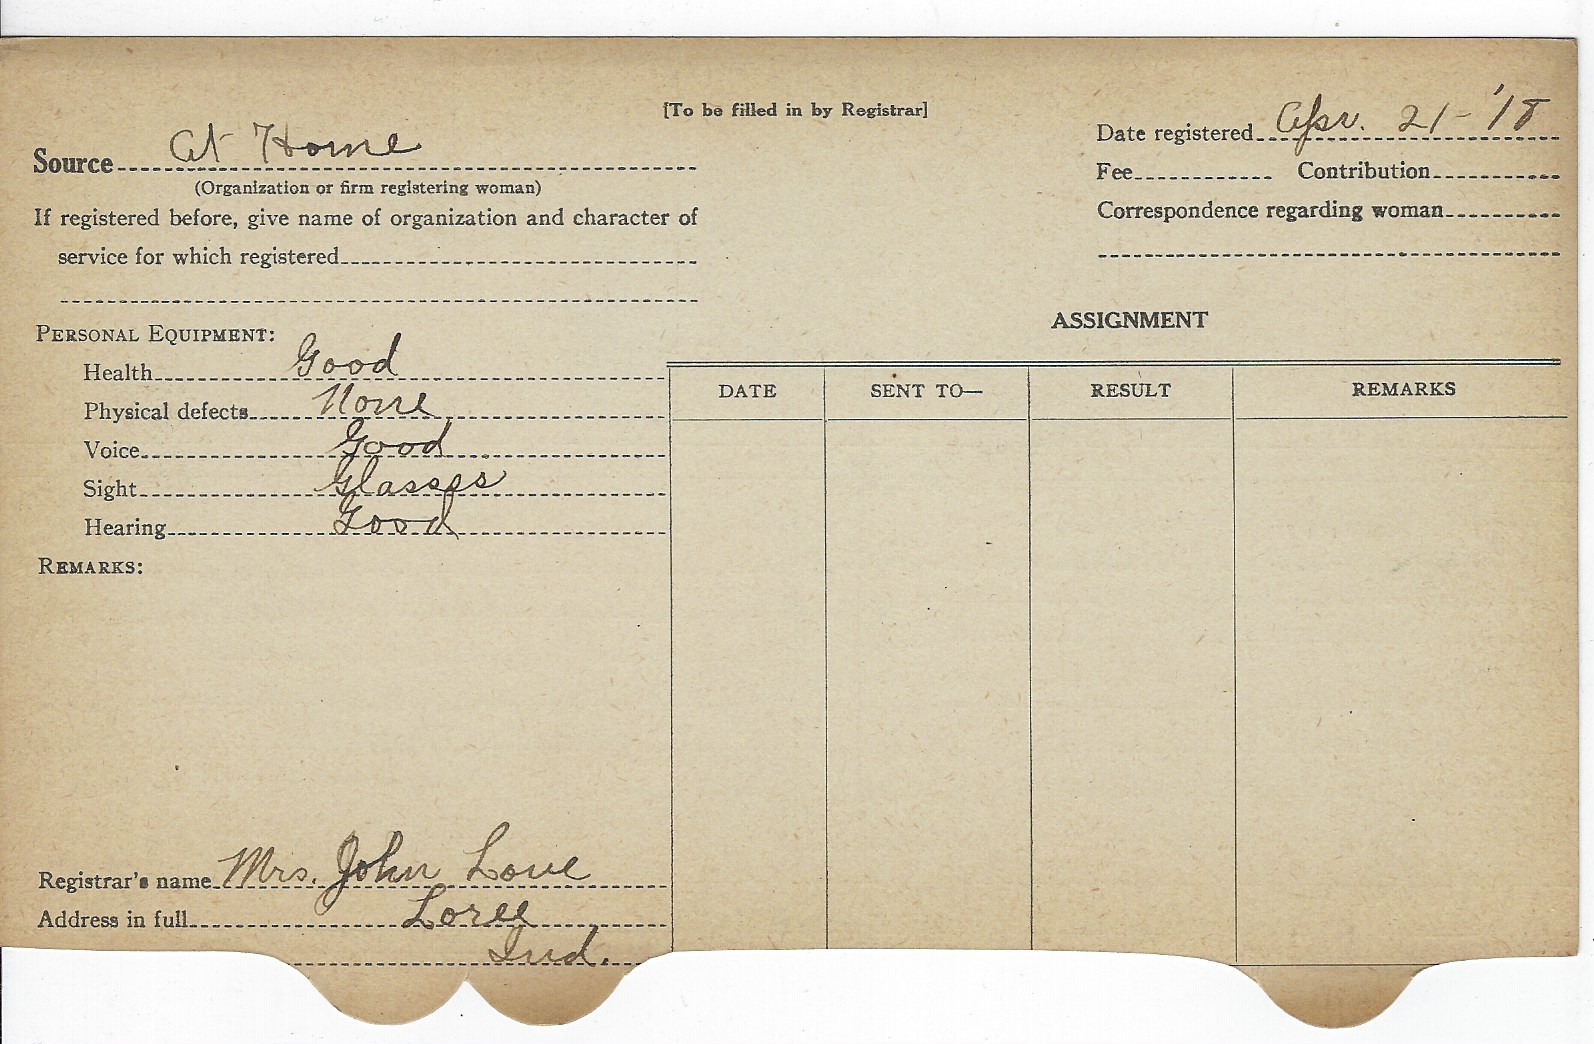 [To be filled in by Registrar]
Source At Home
(Organization or firm registering woman)
If registered before, give name of organization and character of
service for which registered
Date registered Apr. 21-'18
Fee Contribution
Correspondence regarding woman
PERSONAL EQUIPMENT:
Health Good
Physical defects None
Voice Good
Sight Glasses
Hearing Good
REMARKS:
ASSIGNMENT
DATE SENT TO— RESULT REMARKS
Registrar's name Mrs. John Love
Address in full Loree
Ind.